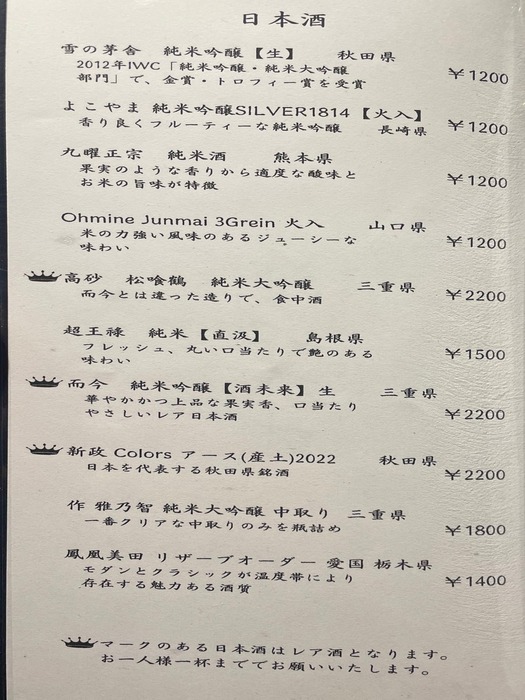 日本酒
雪の茅舎 純米吟醸【生】 秋田県
2012年IWC「純米吟醸・純米大吟醸 ￥1200
部門」で、金賞・トロフィー賞を受賞
よこやま 純米吟醸SILVER1814【火入】
香り良くフルーティーな純米吟醸 長崎県 ￥1200
九曜正宗 純米酒 熊本県
果実のような香りから適度な酸味と ￥1200
お米の旨味が特徴
Ohmine Junmai 3Grein 火入 山口県
米の力強い風味のあるジューシーな ￥1200
味わい
高砂 松喰鶴 純米大吟醸 三重県
而今とは違った造りで、食中酒 ￥2200
超王祿 純米【直汲】 島根県
フレッシュ、丸い口当たりで艶のある ￥1500
味わい
而今 純米吟醸【酒未来】生 三重県
華やかかつ上品な果実香、口当たり ￥2200
やさしいレア日本酒
新政 Colors アース(産土)2022 秋田県
日本を代表する秋田県銘酒 ￥2200
作 雅乃智 純米大吟醸 中取り 三重県
一番クリアな中取りのみを瓶詰め ￥1800
鳳凰美田 リザーブオーダー 愛国 栃木県
モダンとクラシックが温度帯により ￥1400
存在する魅力ある酒質
マークのある日本酒はレア酒となります。
お一人様一杯まででお願いいたします。